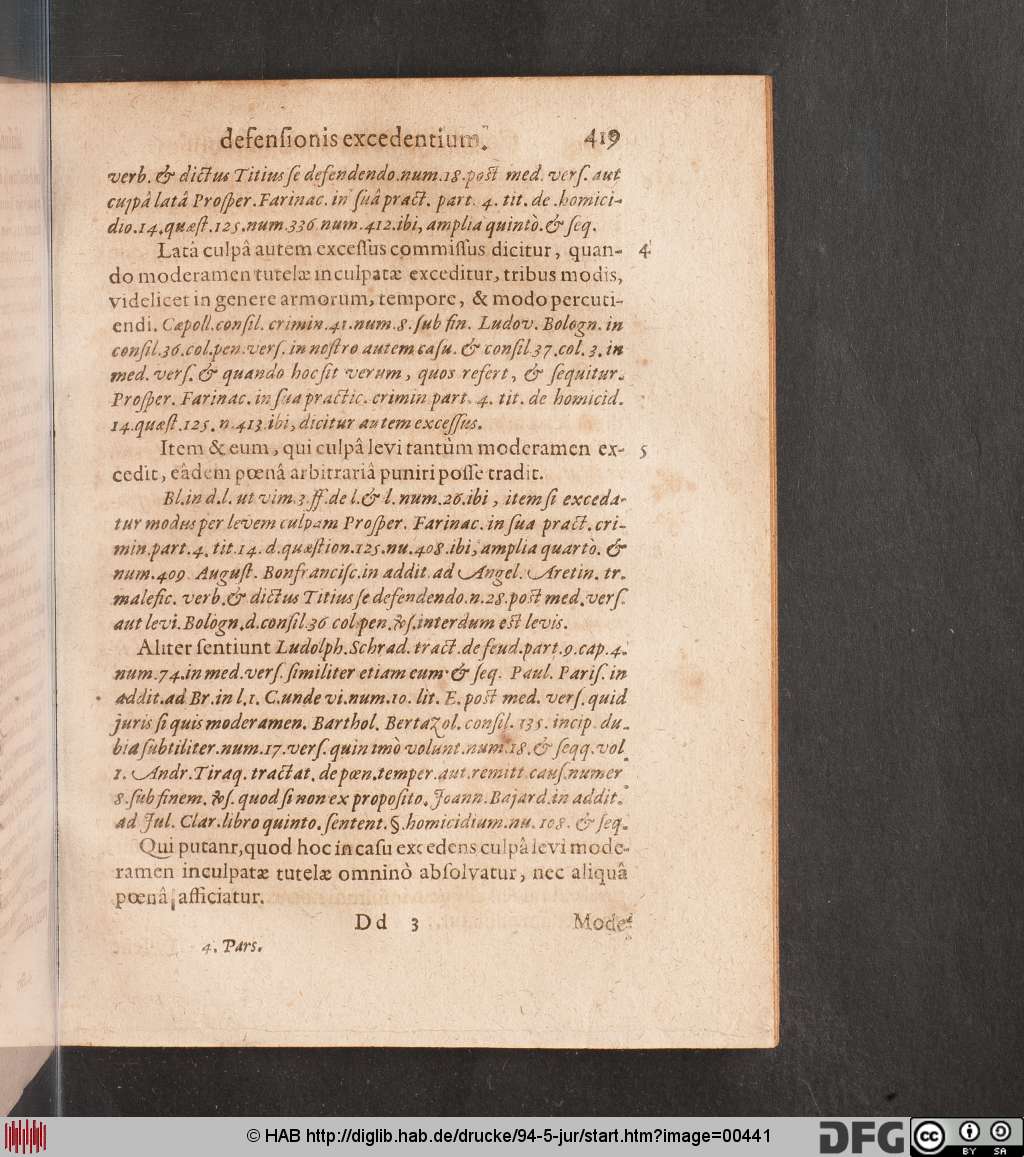 defensionis excedentium. 419
verb. & dictus Titius se defendendo. num. 18. post med. vers. aut
culpâ latâ Prosper. Farinac. in suâ pract. part. 4. tit. de homici-
dio. 14. quæst. 125. num. 336 num. 412. ibi, amplia quintò. & seq.
Latâ culpâ autem excessus commissus dicitur, quan- 4
do moderamen tutelæ inculpatæ exceditur, tribus modis,
videlicet in genere armorum, tempore, & modo percuti-
endi. Cæpoll. consil. crimin. 41. num. 8. sub fin. Ludov. Bologn. in
consil. 36. col. pen. vers. in nostro autem casu. & consil 37. col. 3. in
med. vers. & quando hoc sit verum, quos refert, & sequitur.
Prosper. Farinac. in sua practic. crimin part. 4. tit. de homicid.
14. quæst. 125. n. 413 ibi, dicitur autem excessus.
Item & eum, qui culpâ levi tantùm moderamen ex- 5
cedit, eâdem pœnâ arbitrariâ puniri posse tradit.
Bl. in d. l. ut vim. 3. ff. de l. & l. num. 26. ibi, item si exceda-
tur modus per levem culpam Prosper. Farinac. in sua pract. cri-
min. part. 4. tit. 14. d. quæstion. 125. nu. 408. ibi, amplia quartò. &
num. 409 August. Bonfrancisc. in addit. ad Angel. Aretin. tr.
malefic. verb. & dictus Titius se defendendo. n. 28. post med. vers.
aut levi. Bologn. d. consil. 36 col. pen. ℣s. interdum est levis.
Aliter sentiunt Ludolph. Schrad. tract. de feud. part. 9. cap. 4.
num. 74. in med. vers. similiter etiam eum & seq. Paul. Paris. in
addit. ad Br. in l. 1. C. unde vi. num. 10. lit. E. post med. vers. quid
juris si quis moderamen. Barthol. Bertazol. consil. 135. incip. du-
bia subtiliter. num. 17. vers. quin imò volunt. num. 18. & seqq. vol
1. Andr. Tiraq. tractat. de pœn. temper. aut. remitt caus. numer
8. sub finem. ℣s. quod si non ex proposito. Joann. Bajard. in addit.
ad Jul. Clar. libro quinto. sentent. §. homicidium. nu. 108. & seq.
Qui putanr, quod hoc in casu excedens culpâ levi mode-
ramen inculpatæ tutelæ omninò absolvatur, nec aliquâ
pœnâ afficiatur.
Dd 3 Mode-
4. Pars.
© HAB http://diglib.hab.de/drucke/94-5-jur/start.htm?image=00441
DFG cc BY SA